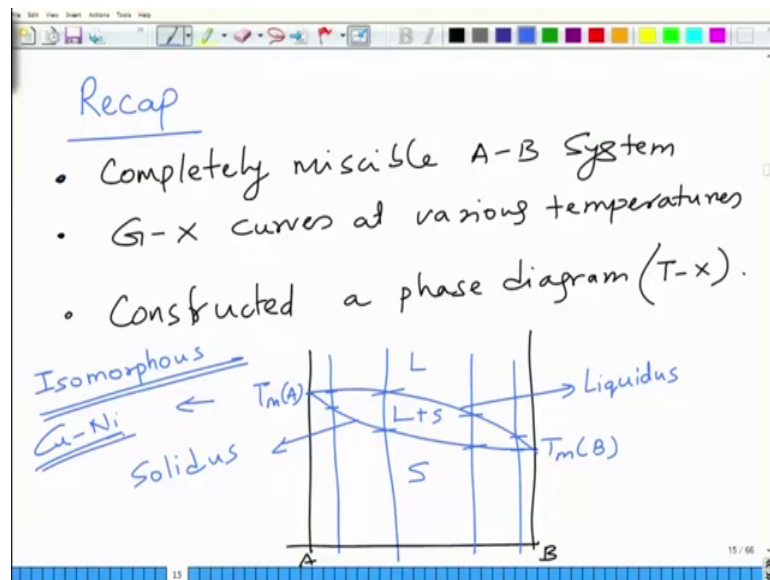 File Edit View Insert Actions Tools Help
B I
Recap
• Completely miscible A-B System
• G-X curves at various temperatures
• Constructed a phase diagram (T-X).
Isomorphous
Cu-Ni
Tm(A)
L
L+S
S
Liquidus
Solidus
Tm(B)
A
B
15 / 66
15